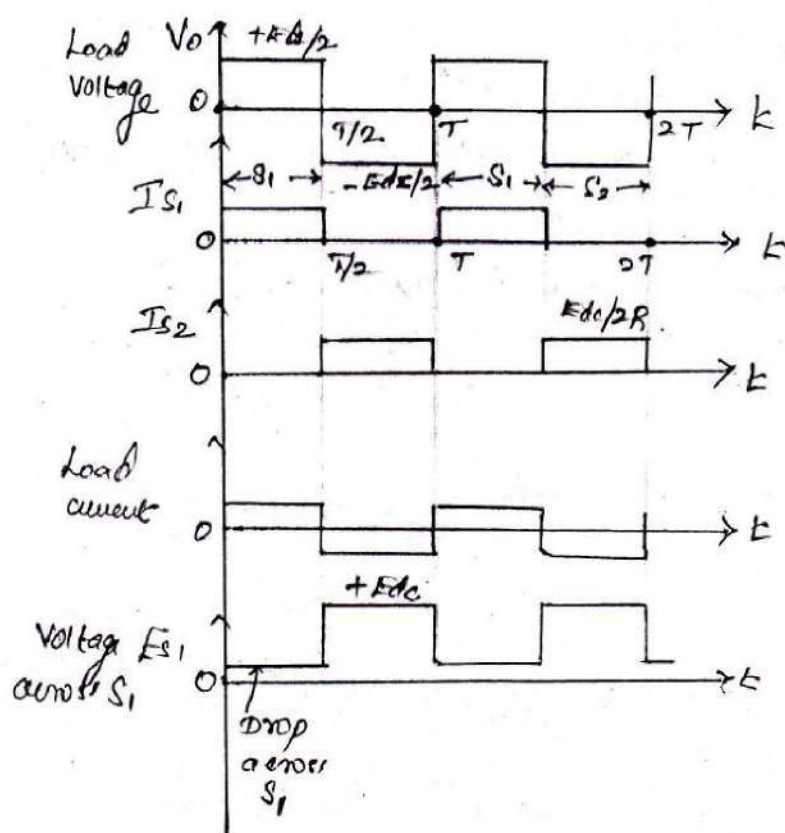 Load Voltage
V0
+Edc/2
0
T/2
T
2T
t
S1
-Edc/2
S1
S2
IS1
0
T/2
T
2T
t
IS2
Edc/2R
0
t
Load current
0
t
+Edc
Voltage ES1
across S1
0
t
Drop
across
S1